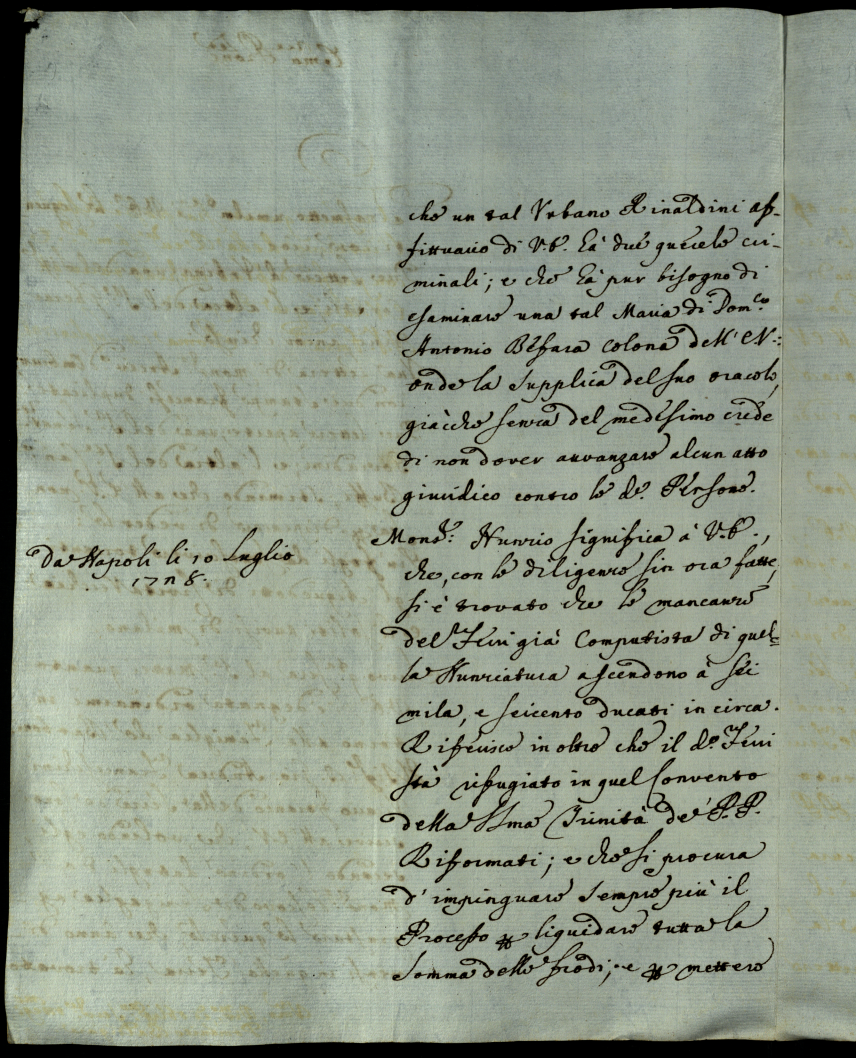 che un tal Urbano Rinaldini af-
fittuario di V.E. hà due querele cri-
minali; e che hà pur bisogno di
esaminare una tal Maria di Dom.co
Antonio Befara colona dell' E.V.:
onde la supplica del suo oracolo,
giacche senza del medesimo crede
di non dover avvanzare alcun atto
giuridico contro le d.e Persone.
Da Napoli li 10 Luglio
Mons.r Nunzio significa à V.E.,
che, con le diligenze sin ora fatte,
si è trovato che le mancanze
del Ferri già Computista di quel=
la Nunziatura ascendono à sei
mila, e seicento ducati in circa.
Riferisce in oltre che il d.o Ferri
stà rifugiato in quel Convento
della SSma Trinità de' P.P.
Riformati; e che si procura
d' impinguare sempre più il
Processo per liquidare tutta la
somma delle frodi; e per mettere